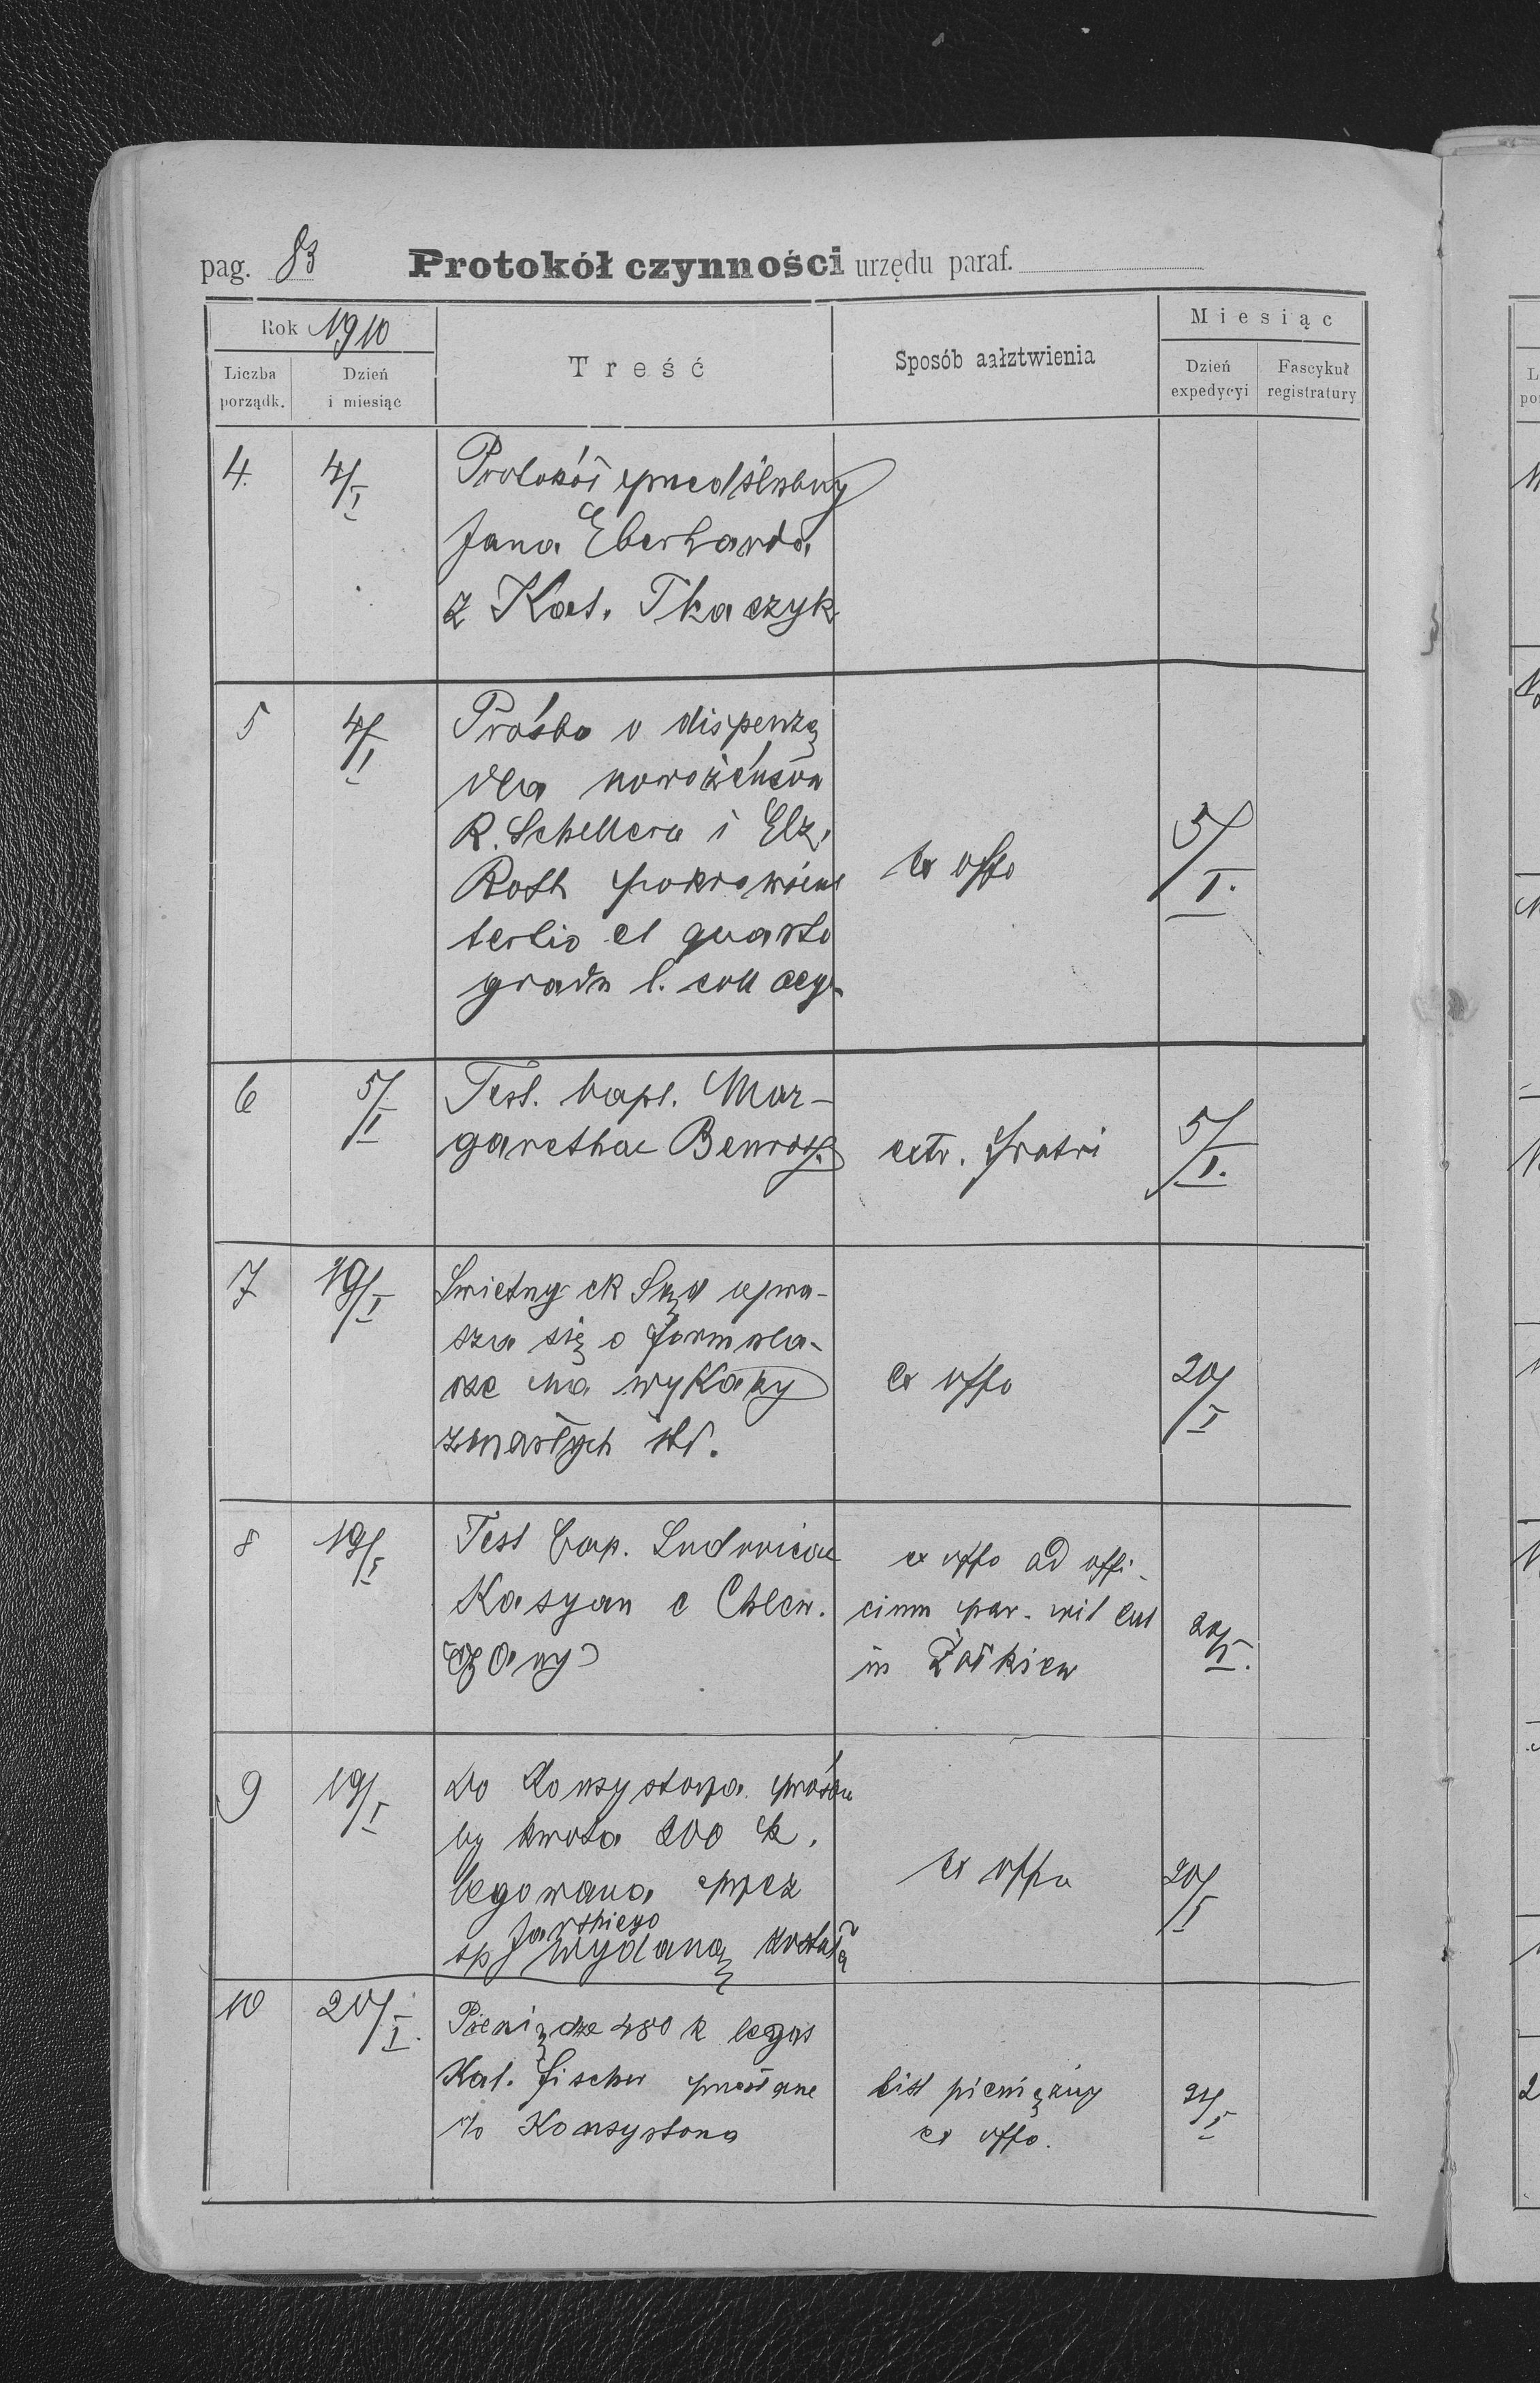 pag. 83 Protokół czynności urzędu paraf.
Rok 1910
Treść
Sposób aałztwienia
Miesiąc
Liczba porządk.
Dzień i miesiąc
Dzień expedycyi
Fascykuł registratury
4. 4/I Protokół przedślubny
Jana Eberharda
z Kat. Tkaczyk
5 4/I Prośba o dispenzę
dla nowożeńców
R. Schellera i Elz.
Roth pokrewień
tertio et quarto
gradu l. coll
ex offo
5/I.
6 5/I Test. bapt. Mar-
garethae
extr. fratri
5/I.
7 19/I Świetny ck Sąd upra-
sza się o formula-
rze na wykazy
zmarłych itd.
ex offo
20/I
8 19/I Test bap. Ludovicae
Kasyan e
ex offo ad offi-
cium par. rit lat
in Żółkiew
20/I.
9 19/I do Konsystorza prośba
by kwota 200 k.
legowana przez
sp Jarskiego wydaną została
ex offo
20/I
10 20/I. Pieniądze 480 k legat
Kat. Fischer przesłane
do Konsystorza
list pieniężny
ex offo.
21/I